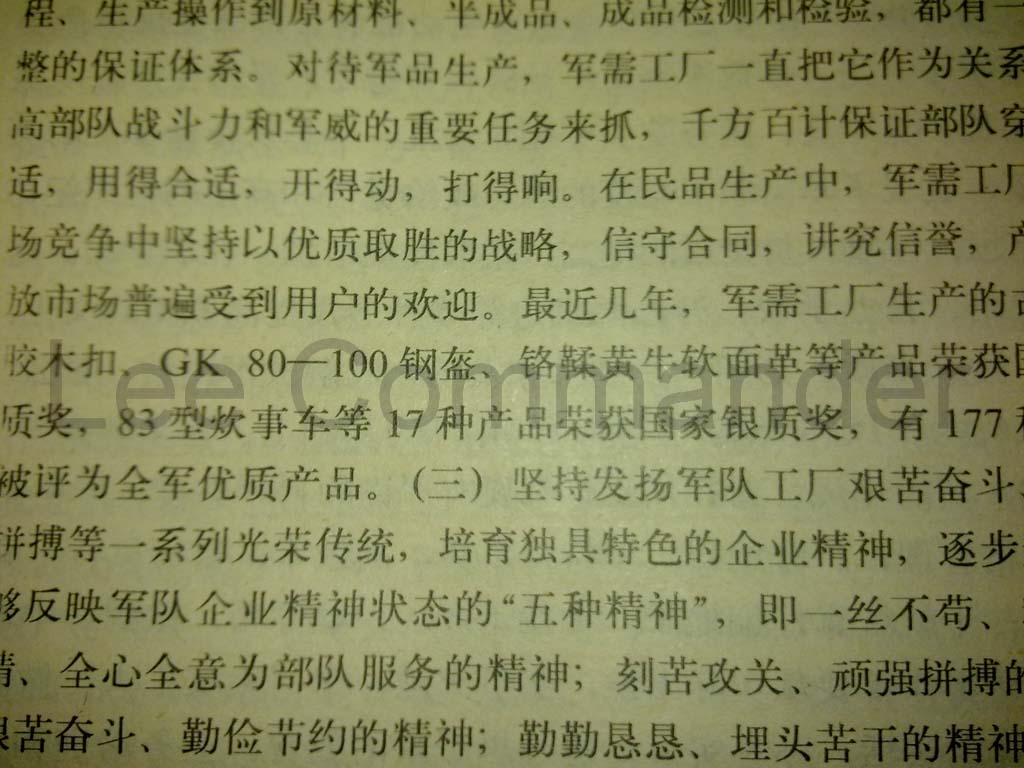 程、生产操作到原材料、半成品、成品检测和检验，都有一
整的保证体系。对待军品生产，军需工厂一直把它作为关系
高部队战斗力和军威的重要任务来抓，千方百计保证部队穿
适，用得合适，开得动，打得响。在民品生产中，军需工厂
场竞争中坚持以优质取胜的战略，信守合同，讲究信誉，产
放市场普遍受到用户的欢迎。最近几年，军需工厂生产的
胶木扣、GK 80—100钢盔、铬鞣黄牛软面革等产品荣获国
质奖，83型炊事车等17种产品荣获国家银质奖，有177种
被评为全军优质产品。(三) 坚持发扬军队工厂艰苦奋斗、
拼搏等一系列光荣传统，培育独具特色的企业精神，逐步
够反映军队企业精神状态的“五种精神”，即一丝不苟、
精、全心全意为部队服务的精神；刻苦攻关、顽强拼搏的
艰苦奋斗、勤俭节约的精神；勤勤恳恳、埋头苦干的精神
Lee Commander